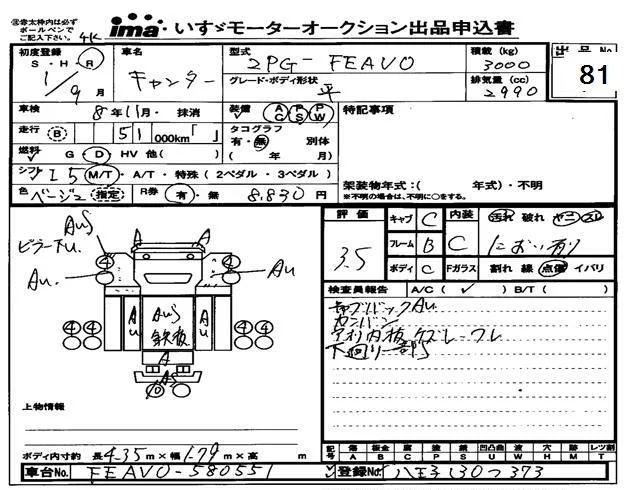 ㊟赤太枠内は必ず
ボールペンで
ご記入ください 4K
ima いすゞモーターオークション出品申込書
出品No 81
初度登録 S・H・R 1/9月
車名 キャンター
型式 2PG-FEAV0
グレード・ボディ形状 平
積載(kg) 3000
排気量(cc) 2990
車検 8年11月・抹消
装備 AC PS PW
特記事項
走行 B 51 000km「 」
タコグラフ 有・無 別体
(年 月)
燃料 G・D・HV 他( )
シフト I 5 M/T・A/T・特殊(2ペダル・3ペダル)
架装物年式:( 年式)・不明
※不明の場合は、不明に○をする。
色 ベージュ 指定 R券 有・無 8,830円
AS
ピラー下U.
Au.
A A
4 4
Au
4 4 Au AS 鉄板 Au 4 4
A
AS
評価 3.5
キャブ C 内装 汚れ 破れ ヤニ スレ
フレーム B C におい有り
ボディ C Fガラス 割れ 線 点傷 イバリ
検査員報告 A/C( ✓ ) B/T( )
キャブバックAu.
カンバン
アオリ内板クズレ・ワレ
下回り一部S
上物情報
ボディ内寸約 長4.35m×幅1.79m×高 m
記号 傷A 板金B 腐C 凹凸凸凹U 波W 穴H 跡M レツ割T
車台No. FEAV0-580551
登録No. 八王子130つ373